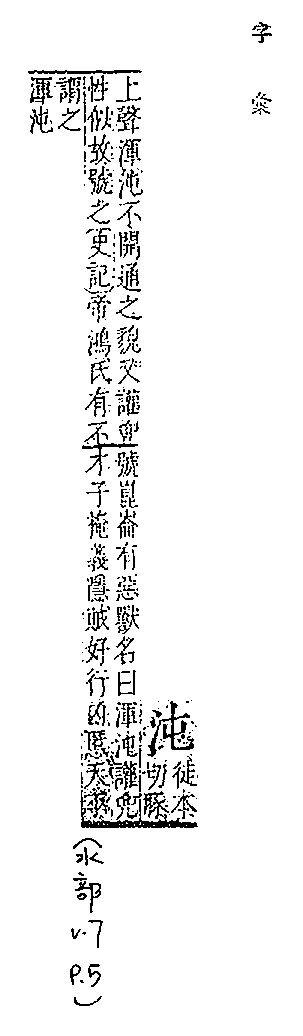 字彙
沌
徒本
切豚
上聲渾沌不開通之貌又讙兜號崑崙有惡獸名曰渾沌讙兜
性似故號之史記帝鴻氏有不才子掩義隱賊好行凶慝天
謂之
渾沌
(水部 v.7 P.5)